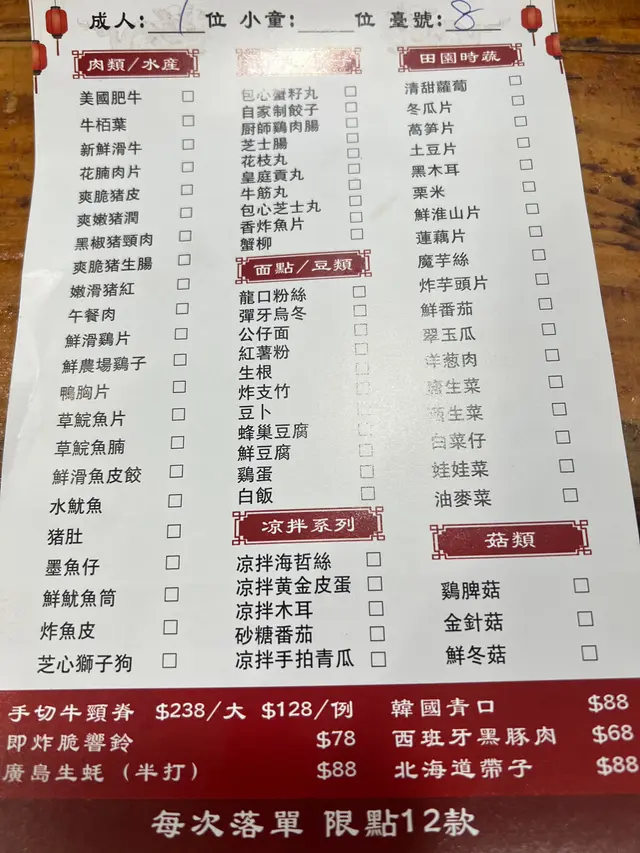 成人: 1 位 小童: 位 臺號: 8
肉類/水産
美國肥牛
牛栢葉
新鮮滑牛
花腩肉片
爽脆猪皮
爽嫩猪潤
黑椒猪頸肉
爽脆猪生腸
嫩滑猪紅
午餐肉
鮮滑鷄片
鮮農場鷄子
鴨胸片
草鯇魚片
草鯇魚腩
鮮滑魚皮餃
水魷魚
猪肚
墨魚仔
鮮魷魚筒
炸魚皮
芝心獅子狗
包心蟹籽丸
自家制餃子
厨師鷄肉腸
芝士腸
花枝丸
皇庭貢丸
牛筋丸
包心芝士丸
香炸魚片
蟹柳
面點/豆類
龍口粉絲
彈牙烏冬
公仔面
紅薯粉
生根
炸支竹
豆卜
蜂巢豆腐
鮮豆腐
鷄蛋
白飯
凉拌系列
凉拌海哲絲
凉拌黄金皮蛋
凉拌木耳
砂糖番茄
凉拌手拍青瓜
田園時蔬
清甜蘿蔔
冬瓜片
萵笋片
土豆片
黑木耳
栗米
鮮淮山片
蓮藕片
魔芋絲
炸芋頭片
鮮番茄
翠玉瓜
洋葱肉
生菜
生菜
白菜仔
娃娃菜
油麥菜
菇類
鷄脾菇
金針菇
鮮冬菇
手切牛頸脊 $238/大 $128/例
即炸脆響鈴 $78
廣島生蚝（半打） $88
韓國青口 $88
西班牙黑豚肉 $68
北海道帶子 $88
每次落單 限點12款